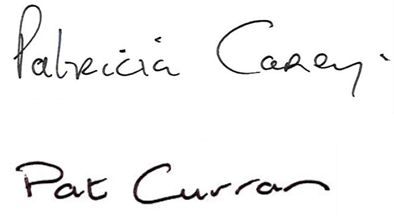 Patricia Carey.
Pat Curran